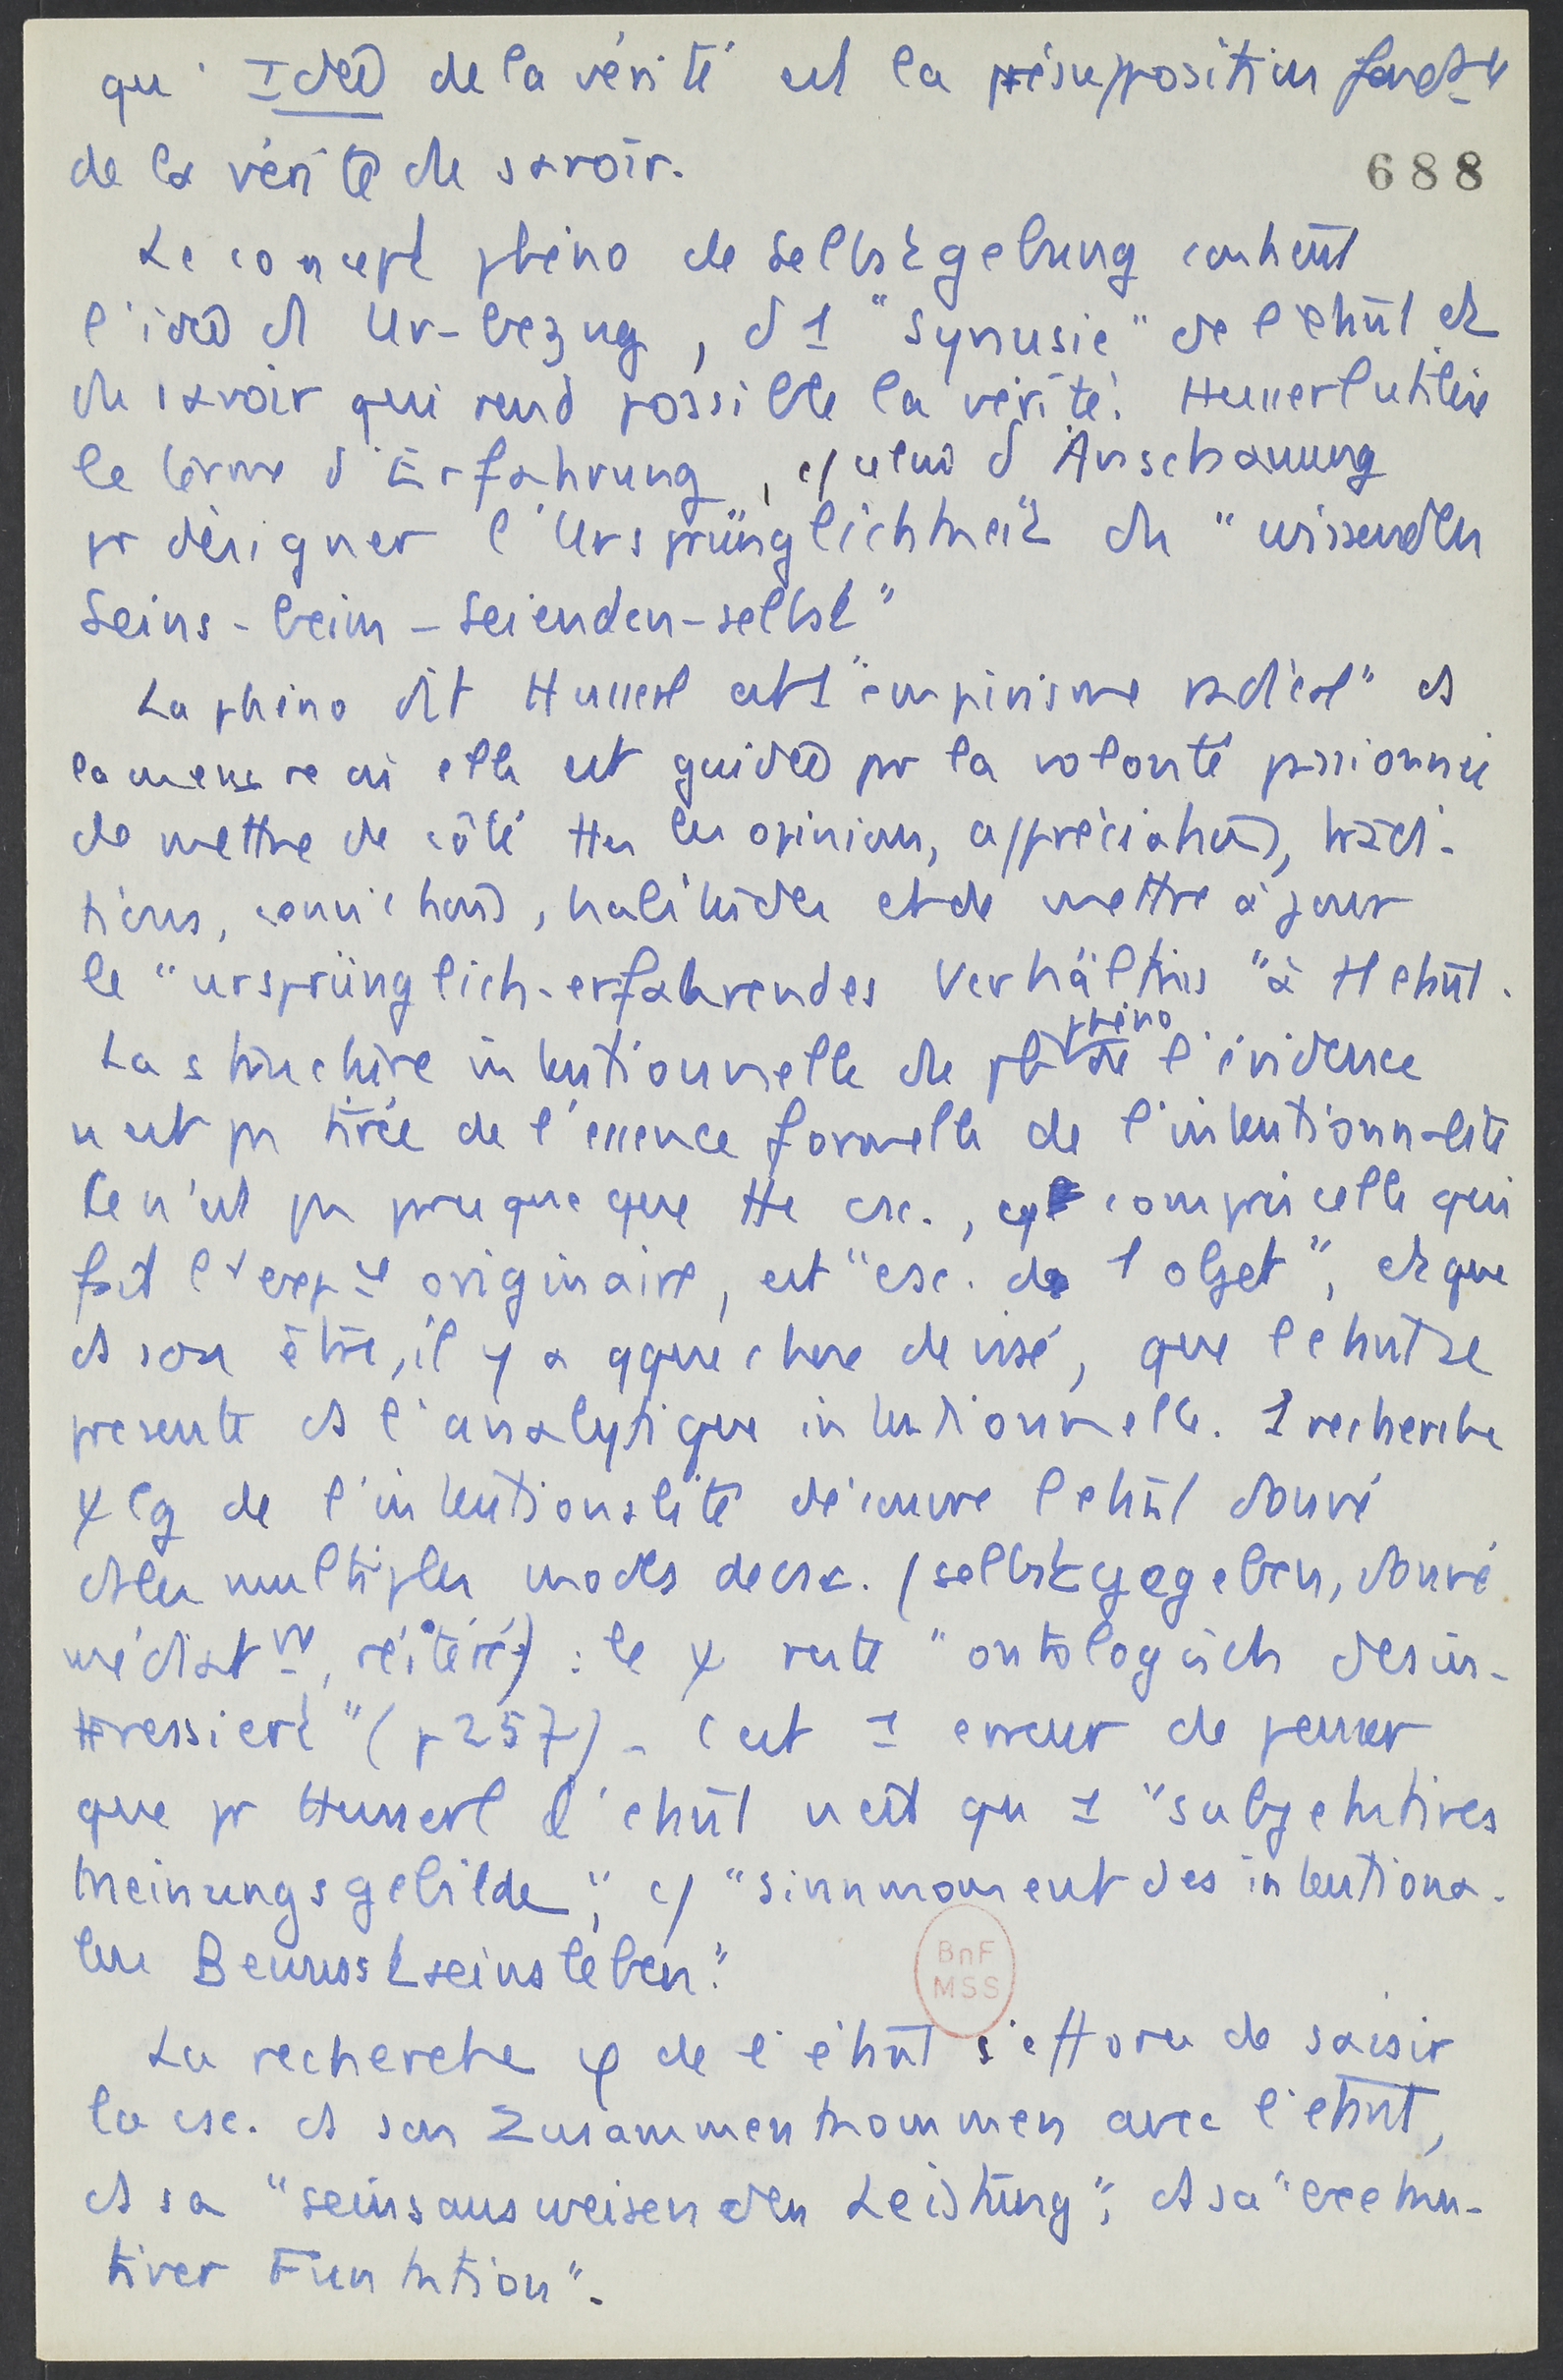 qu' Idée de la vérité est la présupposition fondtle
de la vérité du savoir.
688
Le concept phéno de Selbstgebung contient
l'idée d Ur-bezug, d 1 "synusie" de l'étant et
du savoir qui rend possible la vérité. Husserl utilise
le terme d'Erfahrung, c/ celui d'Anschauung
pr désigner l'Ursprünglichkeit du "wissenden
Seins-beim-Seienden-selbst"
La phéno dit Husserl est 1 "empirisme radical" ds
la mesure où elle est guidée pr la volonté passionnée
de mettre de côté ttes les opinions, appréciations, tradi-
tions, convictions, habitudes et de mettre à jour
le "ursprünglich-erfahrendes Verhältnis" à tt étant.
La structure intentionnelle du ph phéno de l'évidence
n'est pas tirée de l'essence formelle de l'intentionnalité
Ce n'est pas parce que que tte csc., y compris celle qui
fait l'expce originaire, est "csc. de l'objet", et que
ds son être, il y a qque chose de visé, que l'étant se
présente ds l'analytique intentionnelle. 1 recherche
ψlg de l'intentionalité découvre l'étant donné
ds les multiples modes de csc. (selbstgegeben, donné
médiatnt, réitéré) : le ψ reste "ontologisch desin-
teressiert" (p 257) - C'est 1 erreur de penser
que pr Husserl l'étant n'est qu 1 "subjektives
Meinungsgebilde", c/ "Sinnmoment des intentiona-
len Bewusstseinsleben".
La recherche φ de l'étant s'efforce de saisir
la csc. ds son Zusammenkommen avec l'étant,
ds sa "seinsausweisenden Leistung", ds sa "exeku-
tiver Funktion".
BnF
MSS